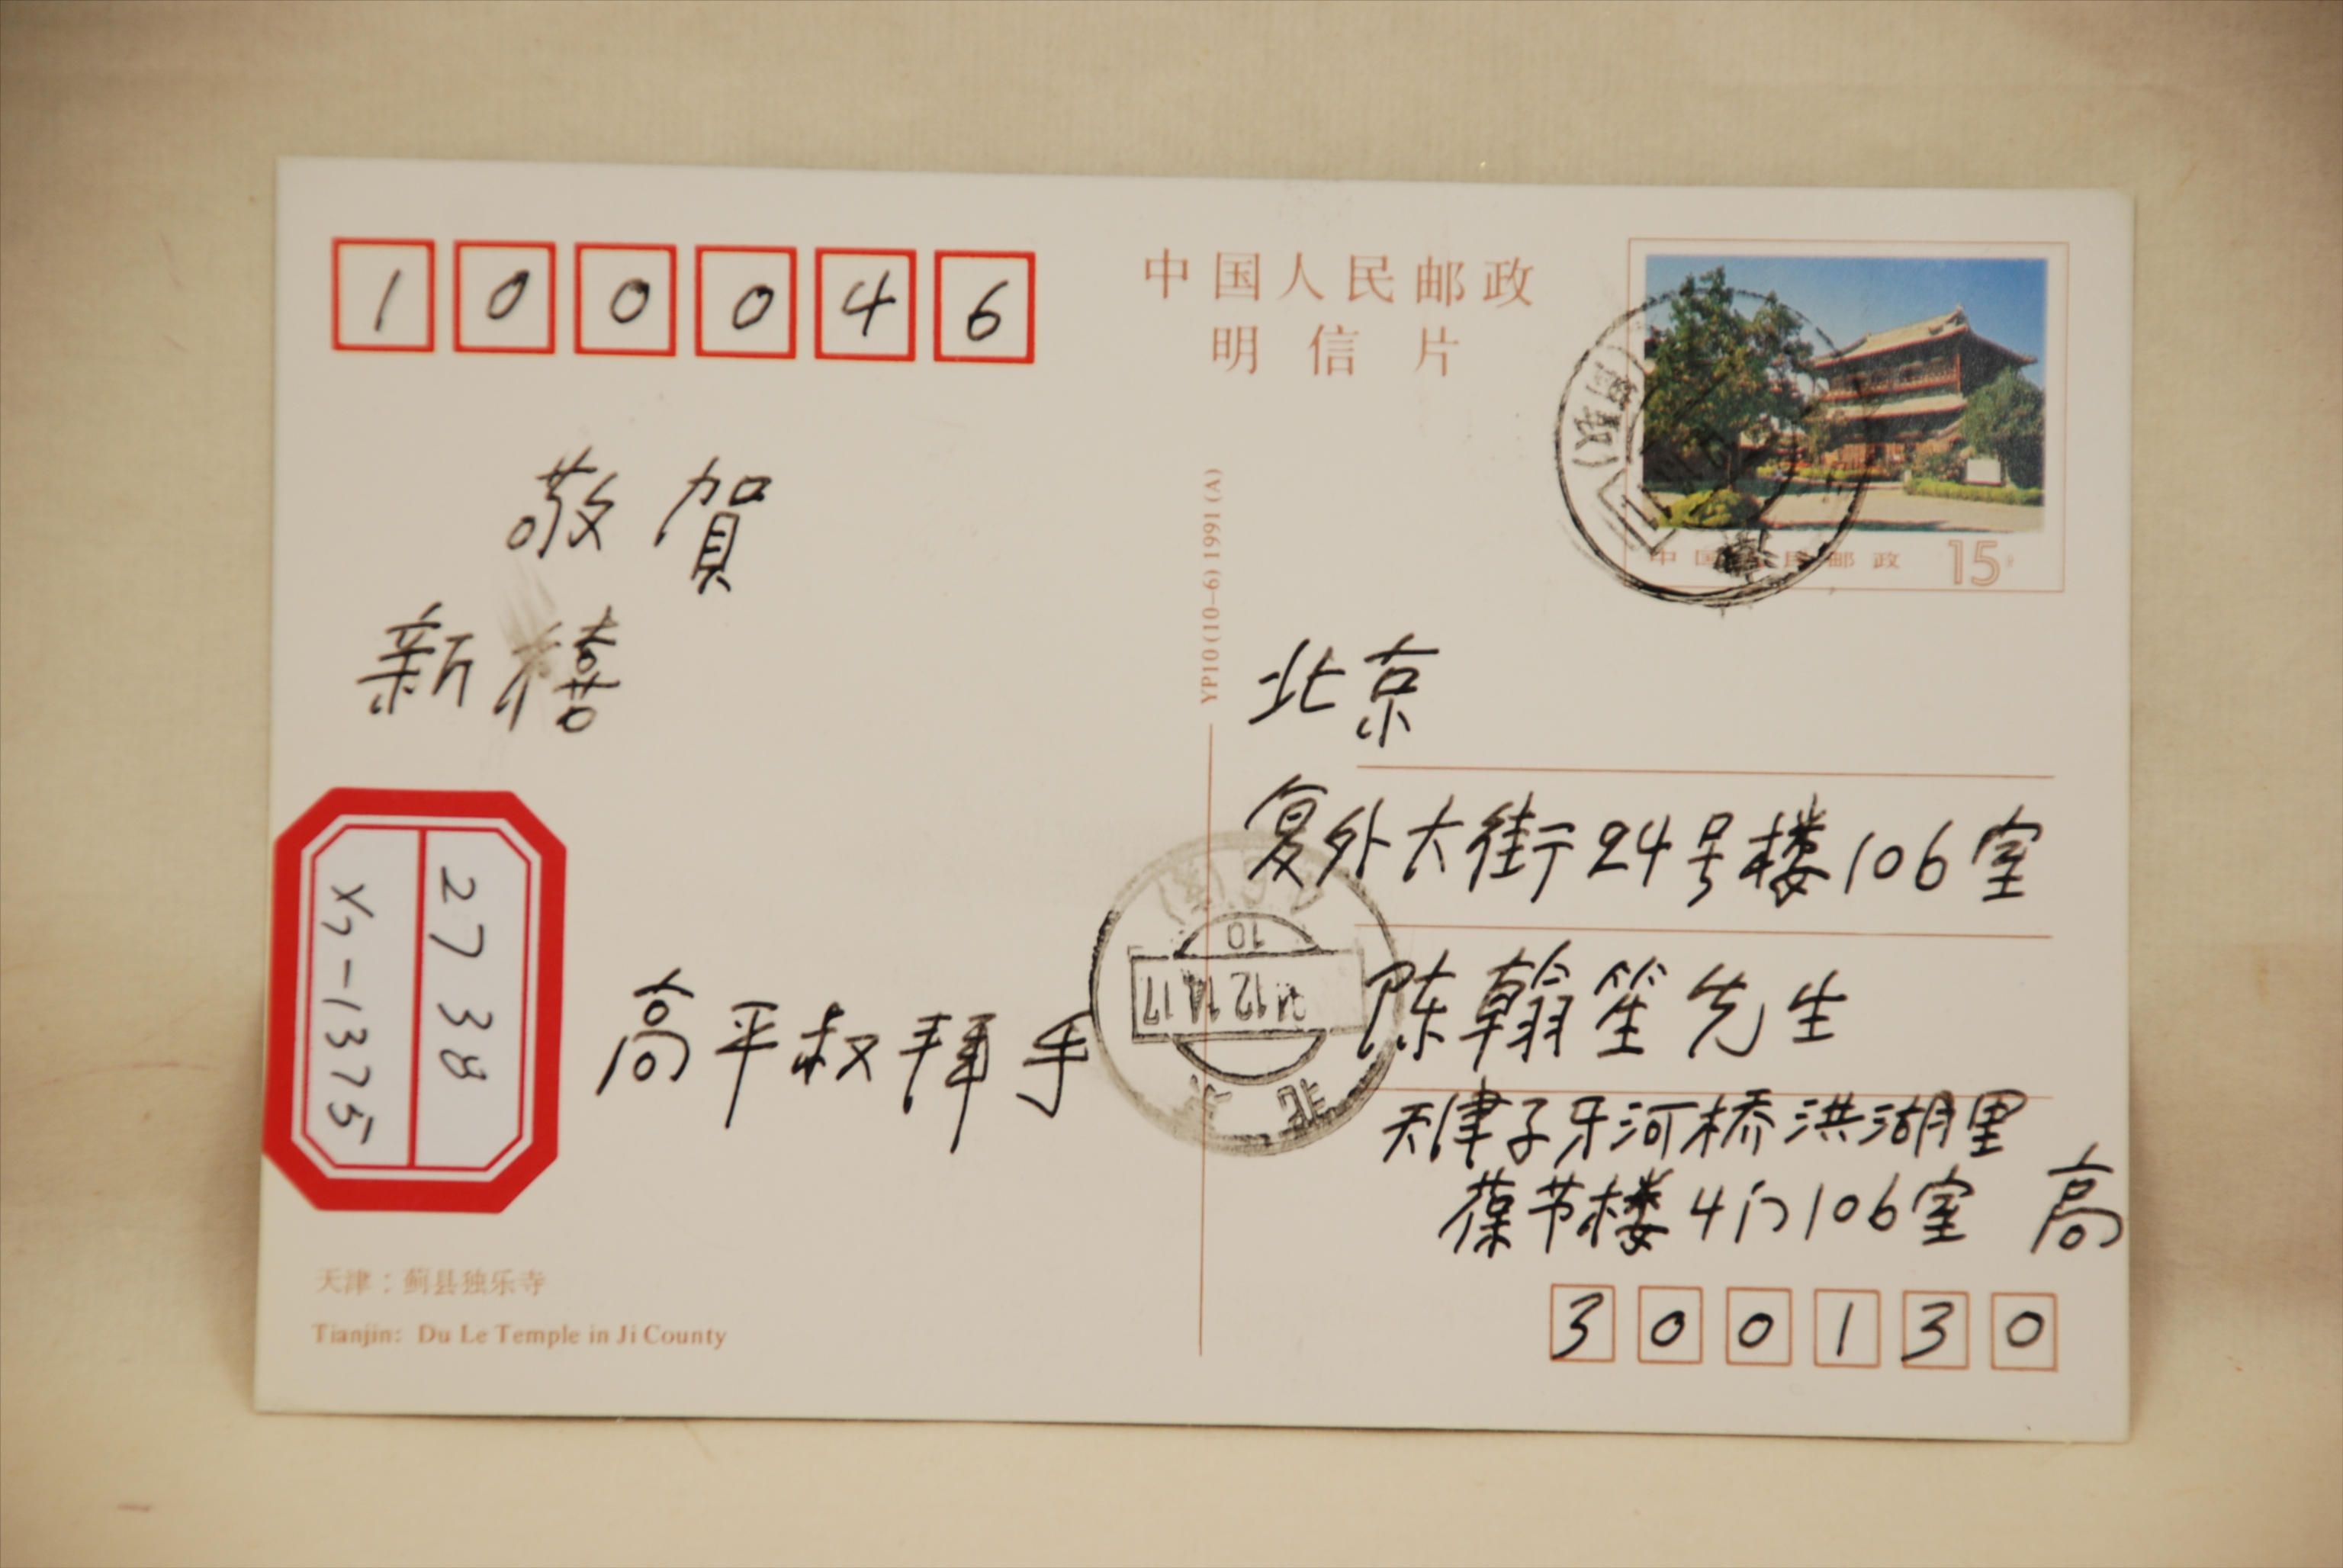 100046
中国人民邮政
明信片
中国人民邮政 15分
敬賀
新禧
高平叔拜手
YP10(10-6) 1991(A)
北京
复外大街24号楼106室
陈翰笙先生
天津子牙河桥洪湖里
葆节楼4门106室 高
300130
2738
XJ-1375
北京
12.14.17
10
天津：蓟县独乐寺
Tianjin: Du Le Temple in Ji County